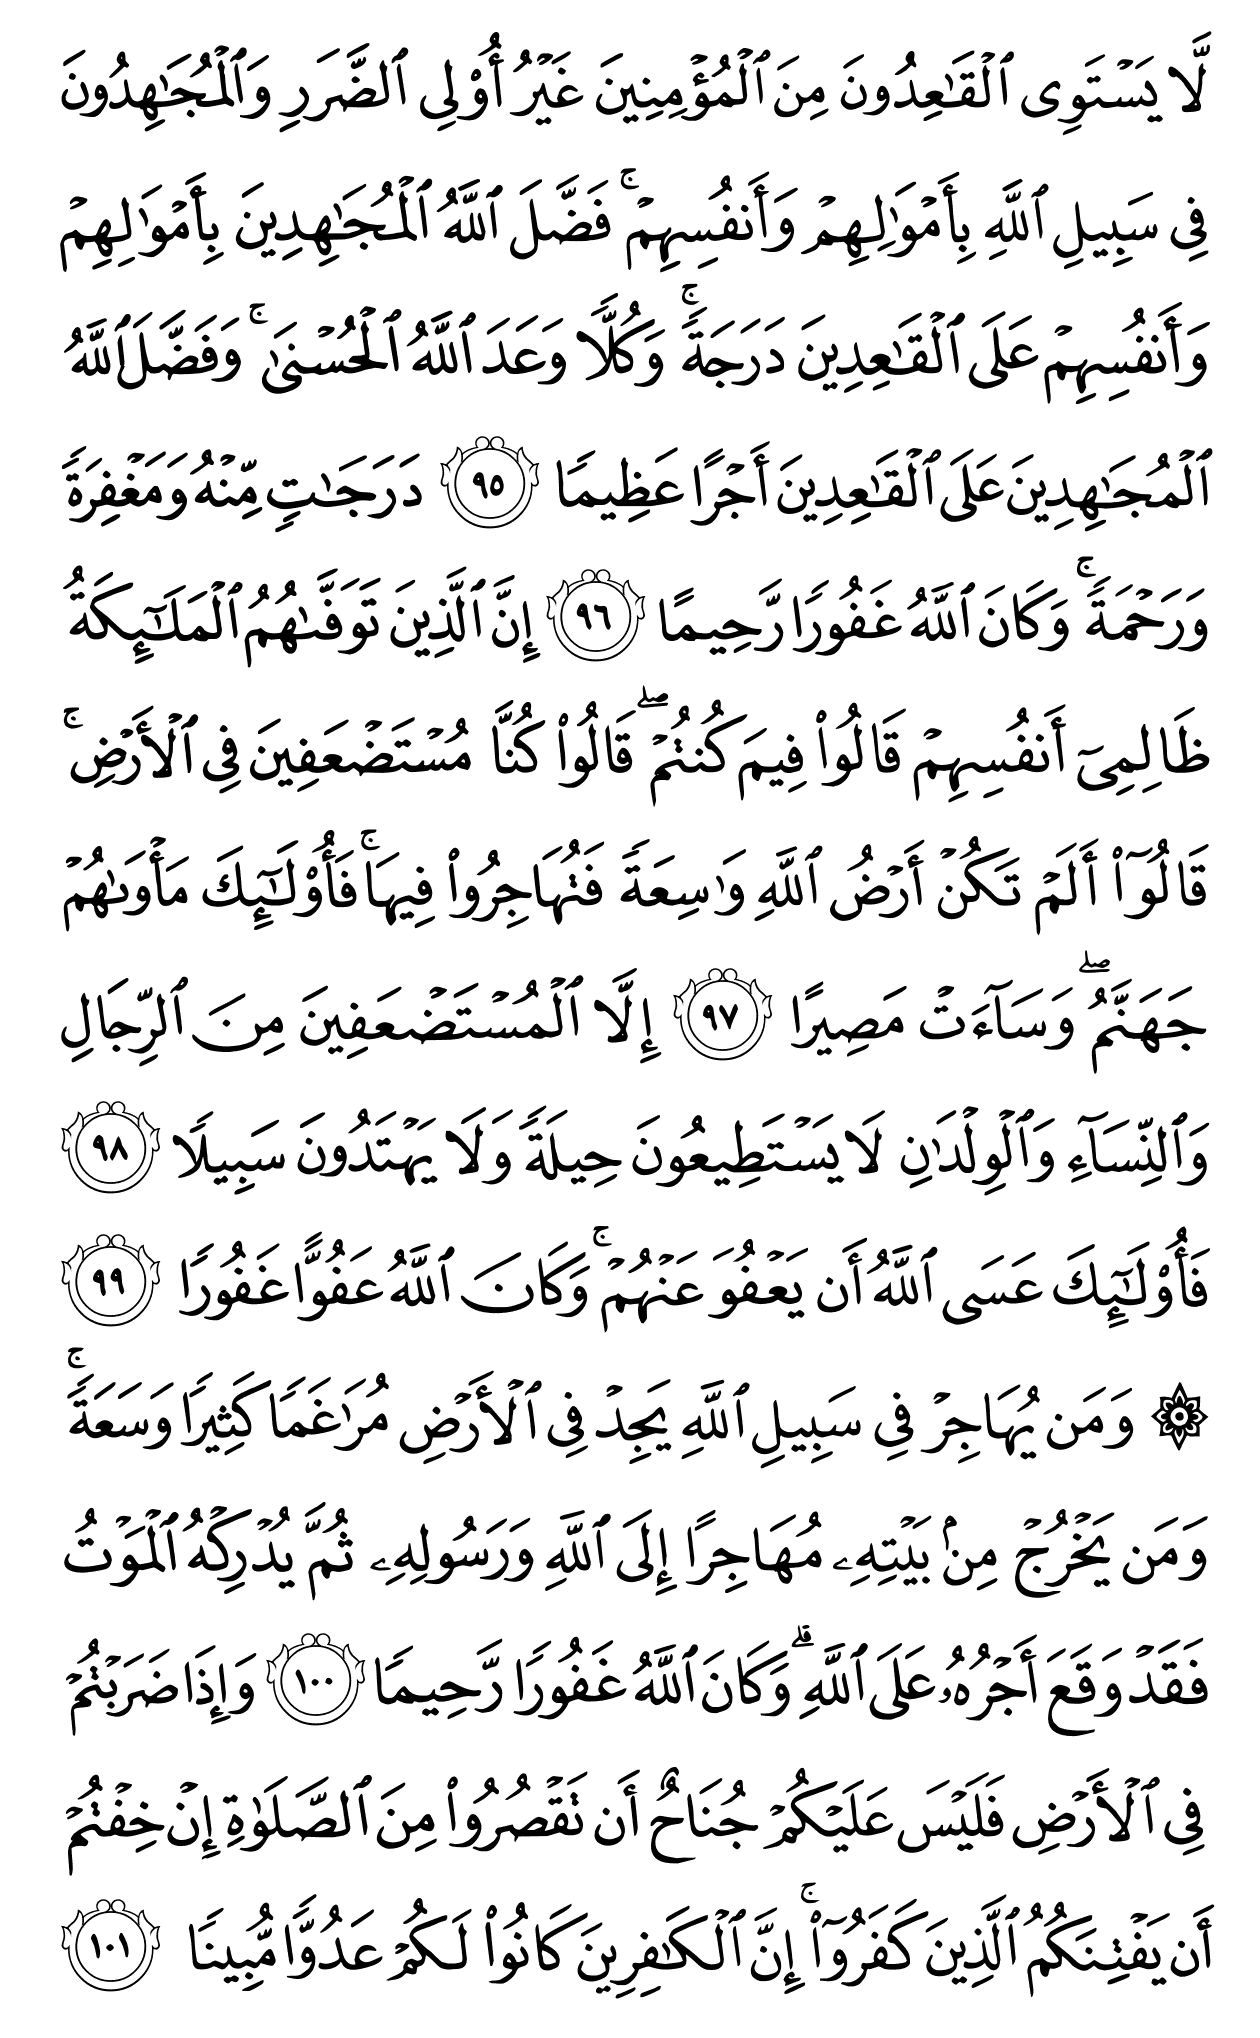 لَّا يَسۡتَوِي ٱلۡقَٰعِدُونَ مِنَ ٱلۡمُؤۡمِنِينَ غَيۡرُ أُوْلِي ٱلضَّرَرِ وَٱلۡمُجَٰهِدُونَ
فِي سَبِيلِ ٱللَّهِ بِأَمۡوَٰلِهِمۡ وَأَنفُسِهِمۡۚ فَضَّلَ ٱللَّهُ ٱلۡمُجَٰهِدِينَ بِأَمۡوَٰلِهِمۡ
وَأَنفُسِهِمۡ عَلَى ٱلۡقَٰعِدِينَ دَرَجَةٗۚ وَكُلّٗا وَعَدَ ٱللَّهُ ٱلۡحُسۡنَىٰۚ وَفَضَّلَ ٱللَّهُ
ٱلۡمُجَٰهِدِينَ عَلَى ٱلۡقَٰعِدِينَ أَجۡرًا عَظِيمٗا ٩٥ دَرَجَٰتٖ مِّنۡهُ وَمَغۡفِرَةٗ
وَرَحۡمَةٗۚ وَكَانَ ٱللَّهُ غَفُورٗا رَّحِيمًا ٩٦ إِنَّ ٱلَّذِينَ تَوَفَّىٰهُمُ ٱلۡمَلَٰٓئِكَةُ
ظَالِمِيٓ أَنفُسِهِمۡ قَالُواْ فِيمَ كُنتُمۡۖ قَالُواْ كُنَّا مُسۡتَضۡعَفِينَ فِي ٱلۡأَرۡضِۚ
قَالُوٓاْ أَلَمۡ تَكُنۡ أَرۡضُ ٱللَّهِ وَٰسِعَةٗ فَتُهَاجِرُواْ فِيهَاۚ فَأُوْلَٰٓئِكَ مَأۡوَىٰهُمۡ
جَهَنَّمُۖ وَسَآءَتۡ مَصِيرًا ٩٧ إِلَّا ٱلۡمُسۡتَضۡعَفِينَ مِنَ ٱلرِّجَالِ
وَٱلنِّسَآءِ وَٱلۡوِلۡدَٰنِ لَا يَسۡتَطِيعُونَ حِيلَةٗ وَلَا يَهۡتَدُونَ سَبِيلٗا ٩٨
فَأُوْلَٰٓئِكَ عَسَى ٱللَّهُ أَن يَعۡفُوَ عَنۡهُمۡۚ وَكَانَ ٱللَّهُ عَفُوًّا غَفُورٗا ٩٩
۞ وَمَن يُهَاجِرۡ فِي سَبِيلِ ٱللَّهِ يَجِدۡ فِي ٱلۡأَرۡضِ مُرَٰغَمٗا كَثِيرٗا وَسَعَةٗۚ
وَمَن يَخۡرُجۡ مِنۢ بَيۡتِهِۦ مُهَاجِرًا إِلَى ٱللَّهِ وَرَسُولِهِۦ ثُمَّ يُدۡرِكۡهُ ٱلۡمَوۡتُ
فَقَدۡ وَقَعَ أَجۡرُهُۥ عَلَى ٱللَّهِۗ وَكَانَ ٱللَّهُ غَفُورٗا رَّحِيمٗا ١٠٠ وَإِذَا ضَرَبۡتُمۡ
فِي ٱلۡأَرۡضِ فَلَيۡسَ عَلَيۡكُمۡ جُنَاحٌ أَن تَقۡصُرُواْ مِنَ ٱلصَّلَوٰةِ إِنۡ خِفۡتُمۡ
أَن يَفۡتِنَكُمُ ٱلَّذِينَ كَفَرُوٓاْۚ إِنَّ ٱلۡكَٰفِرِينَ كَانُواْ لَكُمۡ عَدُوّٗا مُّبِينٗا ١٠١